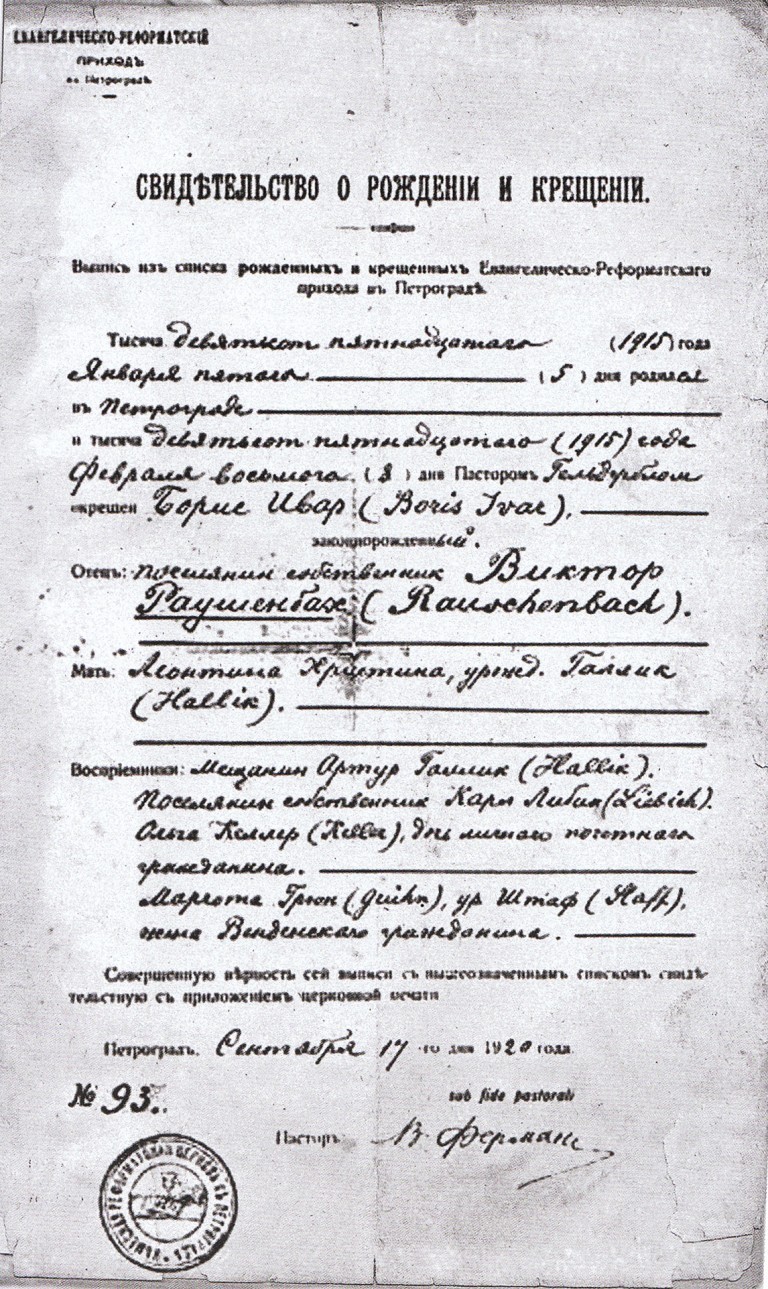 ЕВАНГЕЛИЧЕСКО-РЕФОРМАТСКІЙ
ПРИХОДЪ
въ Петроградѣ.
СВИДѢТЕЛЬСТВО О РОЖДЕНІИ И КРЕЩЕНІИ.
Выпись изъ списка рожденныхъ и крещенныхъ Евангелическо-Реформатскаго
прихода въ Петроградѣ.
Тысяча девятьсот пятнадцатаго (1915) года
Января пятаго (5) дня родился
въ Петрограде
и тысяча девятьсот пятнадцатого (1915) года
Февраля восьмого (8) дня Пасторомъ Гельдерблом
окрещен Борис Ивар (Boris Ivar),
законнорожденный.
Отецъ: поселянин собственник Виктор
Раушенбах (Rauschenbach).
Мать: Леонтина Христина, урожд. Галлик
(Hallik).
Воспріемники: Мещанин Артур Галлик (Hallik).
Поселянин собственник Карл Либих (Liebich).
Ольга Келлер (Keller), дочь личного почетного
гражданина.
Маргота Грюн (Grühn), ур Штаф (Staff),
жена Венденского гражданина.
Совершенную вѣрность сей выписи съ вышеозначеннымъ спискомъ свидѣ-
тельствую съ приложеніемъ церковной печати
Петроградъ, Сентября 17 -го дня 1920 года.
№ 93.
sub fide pastorali
Пасторъ
РЕФОРМАТСКАЯ ЦЕРКОВЬ СЪ ПЕТРОГРАДѢ